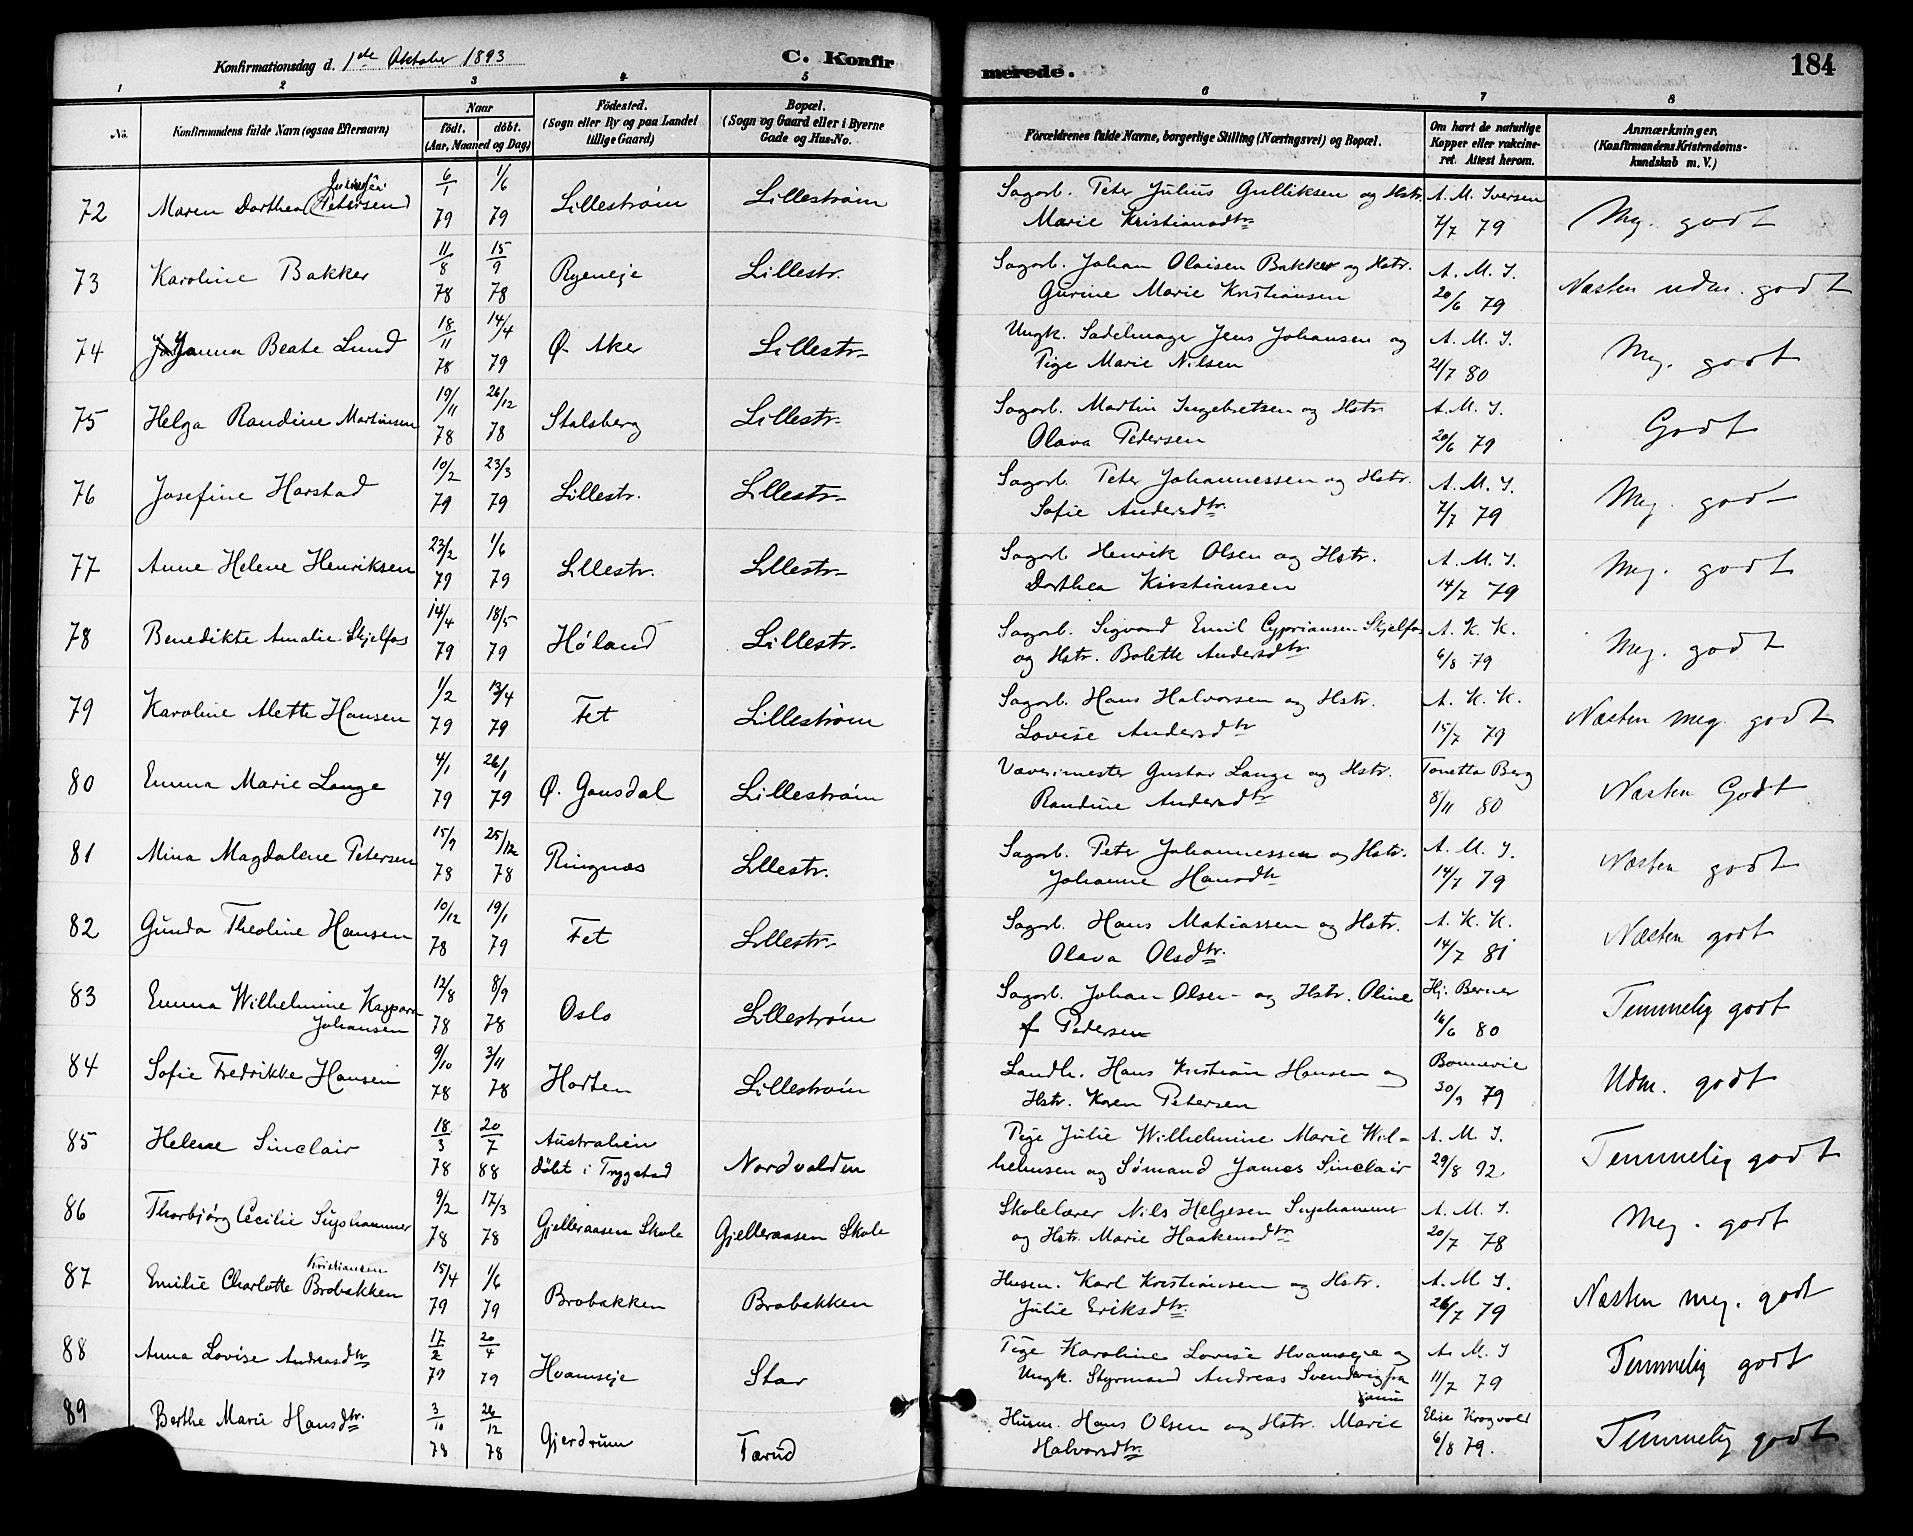 Konfirmationsdag d. 1ste Oktober 1893 C. Konfirmerede. 184
1 2 3 4 5 6 7 8
No. Konfirmandens fulde Navn (ogsaa Efternavn) Naar födt. döbt. (Aar, Maaned og Dag) Födested. (Sogn eller By og paa Landet tillige Gaard) Bopæl. (Sogn og Gaard eller i Byerne Gade og Hus-No. Forældrenes fulde Navne, borgerlige Stilling (Næringsvei) og Bopæl. Om havt de naturlige Kopper eller vaccineret. Attest herom. Anmærkninger. (Konfirmandens Kristendomskundskab m. V.)
72 Maren Dorthea Petersen 6/1 79 1/6 79 Lillestrøm Lillestrøm Sagarb. Peter Julius Gulliksen og Hstr. A. M. Iversen Meg. godt
Marie Kristiansdtr 7/7 79
73 Karoline Bakker 11/8 78 15/9 78 Ryeneje Lillestr. Sagarb. Johan Olaisen Bakker og Hstr. A. M. I. Næsten udm. godt
Gurine Marie Kristiansen 20/6 79
74 Janna Beate Lund 18/11 78 14/4 79 Ø. Aker Lillestr. Ungk. Sadelmager Jens Johansen og A. M. I. Meg. godt
Pige Marie Nilsen 21/7 80
75 Helga Randine Martinsen 19/11 78 26/12 78 Stalsberg Lillestr. Sagarb. Martin Ingebretsen og Hstr. A. M. I. Godt
Olava Pedersen 20/6 79
76 Josefine Harstad 10/2 79 23/3 79 Lillestr. Lillestr. Sagarb. Peter Johannessen og Hstr. A. M. I. Meg. godt
Sofie Andersdtr. 7/7 79
77 Anne Helene Henriksen 23/2 79 1/6 79 Lillestr. Lillestr. Sagarb. Henrik Olsen og Hstr. A. M. I. Meg. godt
Dorthea Kristiansen 14/7 79
78 Benedikte Amalie Skjelfos 14/4 79 18/5 79 Høland Lillestr. Sagarb. Sigvard Emil Cypriansen Skjelfos A. K. K. Meg. godt
og Hstr. Bolette Andersdtr 6/8 79
79 Karoline Alette Hansen 1/2 79 13/4 79 Fet Lillestrøm Sagarb. Hans Halvorsen og Hstr. A. K. K. Næsten meg. godt
Lovise Andersdtr 15/7 79
80 Emma Marie Lange 4/1 79 26/1 79 Ø. Gausdal Lillestrøm Væverimester Gustav Lange og Hstr. Tonetta Berg Næsten Godt
Randine Andersdtr 8/11 80
81 Mina Magdalene Petersen 15/9 78 25/12 78 Ringnæs Lillestr. Sagarb. Peter Johannessen og Hstr. A. M. I. Næsten godt
Johanne Hansdtr 14/7 79
82 Gunda Theoline Hansen 10/12 78 19/1 79 Fet Lillestr. Sagarb. Hans Matiassen og Hstr. A. K. K. Næsten godt
Olava Olsdtr. 14/7 81
83 Emma Wilhelmine Kaspara 12/8 78 8/9 78 Oslo Lillestrøm Sagarb. Johan Olsen og Hstr. Oline Hj. Berner Temmelig godt
Johansen f Pedersen 16/6 80
84 Sofie Fredrikke Hansen 9/10 78 3/11 78 Horten Lillestrøm Landh. Hans Kristian Hansen og Bonnevie Udm. godt
Hstr. Karen Petersen 30/9 79
85 Helene Sinclair 18/3 78 20/7 88 Australien Nordvalden Pige Julie Wilhelmine Marie Wil- A. M. I. Temmelig godt
døbt i Trygstad helmsen og Sømand James Sinclair 29/8 92
86 Thorbjørg Cecilie Suphammer 9/2 78 17/3 78 Gjelleraasen Skole Gjelleraasen Skole Skolelærer Nils Helgesen Suphammer A. M. I. Meg. godt
og Hstr. Marie Haakensdtr 20/7 78
87 Emilie Charlotte Kristiansen Brobakken 15/4 79 1/6 79 Brobakken Brobakken Husm. Karl Kristiansen og Hstr. A. M. I. Næsten meg. godt
Julie Eriksdtr. 26/7 79
88 Anna Lovise Andreasdtr 17/2 79 20/4 79 Hvamseje Star Pige Karoline Lovise Hvamseje og A. M. I Temmelig godt
Ungk. Styrmand Andreas Svendsvig fra 11/7 79
89 Berthe Marie Hansdtr. 3/10 78 26/12 78 Gjerdrum Tærud Husm. Hans Olsen og Hstr. Marie Elise Krogvold Temmelig godt
Halvorsdtr. 6/8 79.